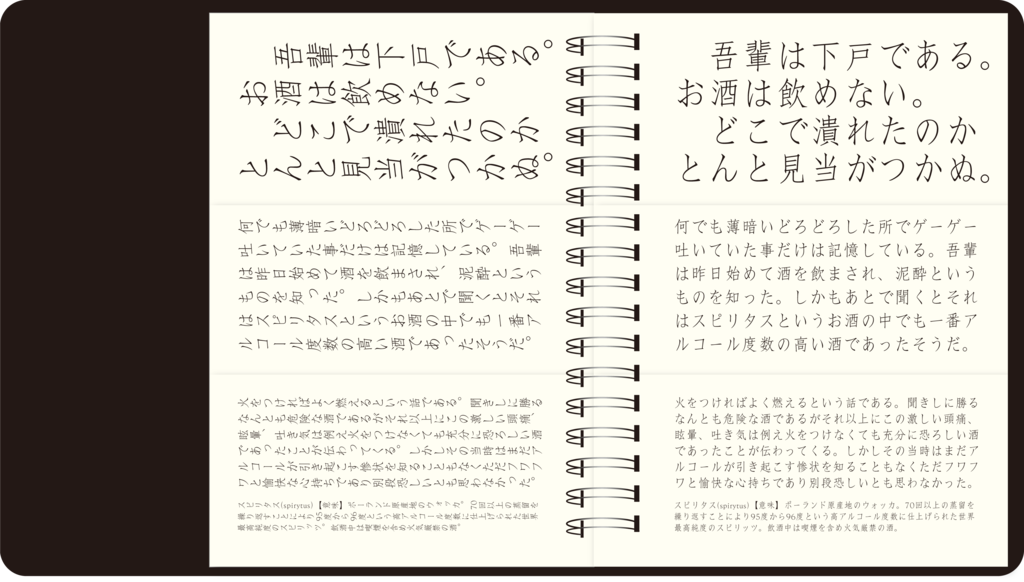 吾輩は下戸である。
お酒は飲めない。
どこで潰れたのか
とんと見当がつかぬ。
何でも薄暗いどろどろした所でゲーゲー
吐いていた事だけは記憶している。吾輩
は昨日始めて酒を飲まされ、泥酔という
ものを知った。しかもあとで聞くとそれ
はスピリタスというお酒の中でも一番ア
ルコール度数の高い酒であったそうだ。
火をつければよく燃えるという話である。聞きしに勝る
なんとも危険な酒であるがそれ以上にこの激しい頭痛、
眩暈、吐き気は例え火をつけなくても充分に恐ろしい酒
であったことが伝わってくる。しかしその当時はまだア
ルコールが引き起こす惨状を知ることもなくただフワフ
ワと愉快な心持ちであり別段恐しいとも思わなかった。
スピリタス(spirytus)【意味】ポーランド原産地のウォッカ。70回以上の蒸留を
繰り返すことにより95度から96度という高アルコール度数に仕上げられた世界
最高純度のスピリッツ。飲酒中は喫煙を含め火気厳禁の酒。
吾輩は下戸である。
お酒は飲めない。
どこで潰れたのか
とんと見当がつかぬ。
何でも薄暗いどろどろした所でゲーゲー
吐いていた事だけは記憶している。吾輩
は昨日始めて酒を飲まされ、泥酔という
ものを知った。しかもあとで聞くとそれ
はスピリタスというお酒の中でも一番ア
ルコール度数の高い酒であったそうだ。
火をつければよく燃えるという話である。聞きしに勝る
なんとも危険な酒であるがそれ以上にこの激しい頭痛、
眩暈、吐き気は例え火をつけなくても充分に恐ろしい酒
であったことが伝わってくる。しかしその当時はまだア
ルコールが引き起こす惨状を知ることもなくただフワフ
ワと愉快な心持ちであり別段恐しいとも思わなかった。
スピリタス(spirytus)【意味】ポーランド原産地のウォッカ。70回以上の蒸留を
繰り返すことにより95度から96度という高アルコール度数に仕上げられた世界
最高純度のスピリッツ。飲酒中は喫煙を含め火気厳禁の酒。